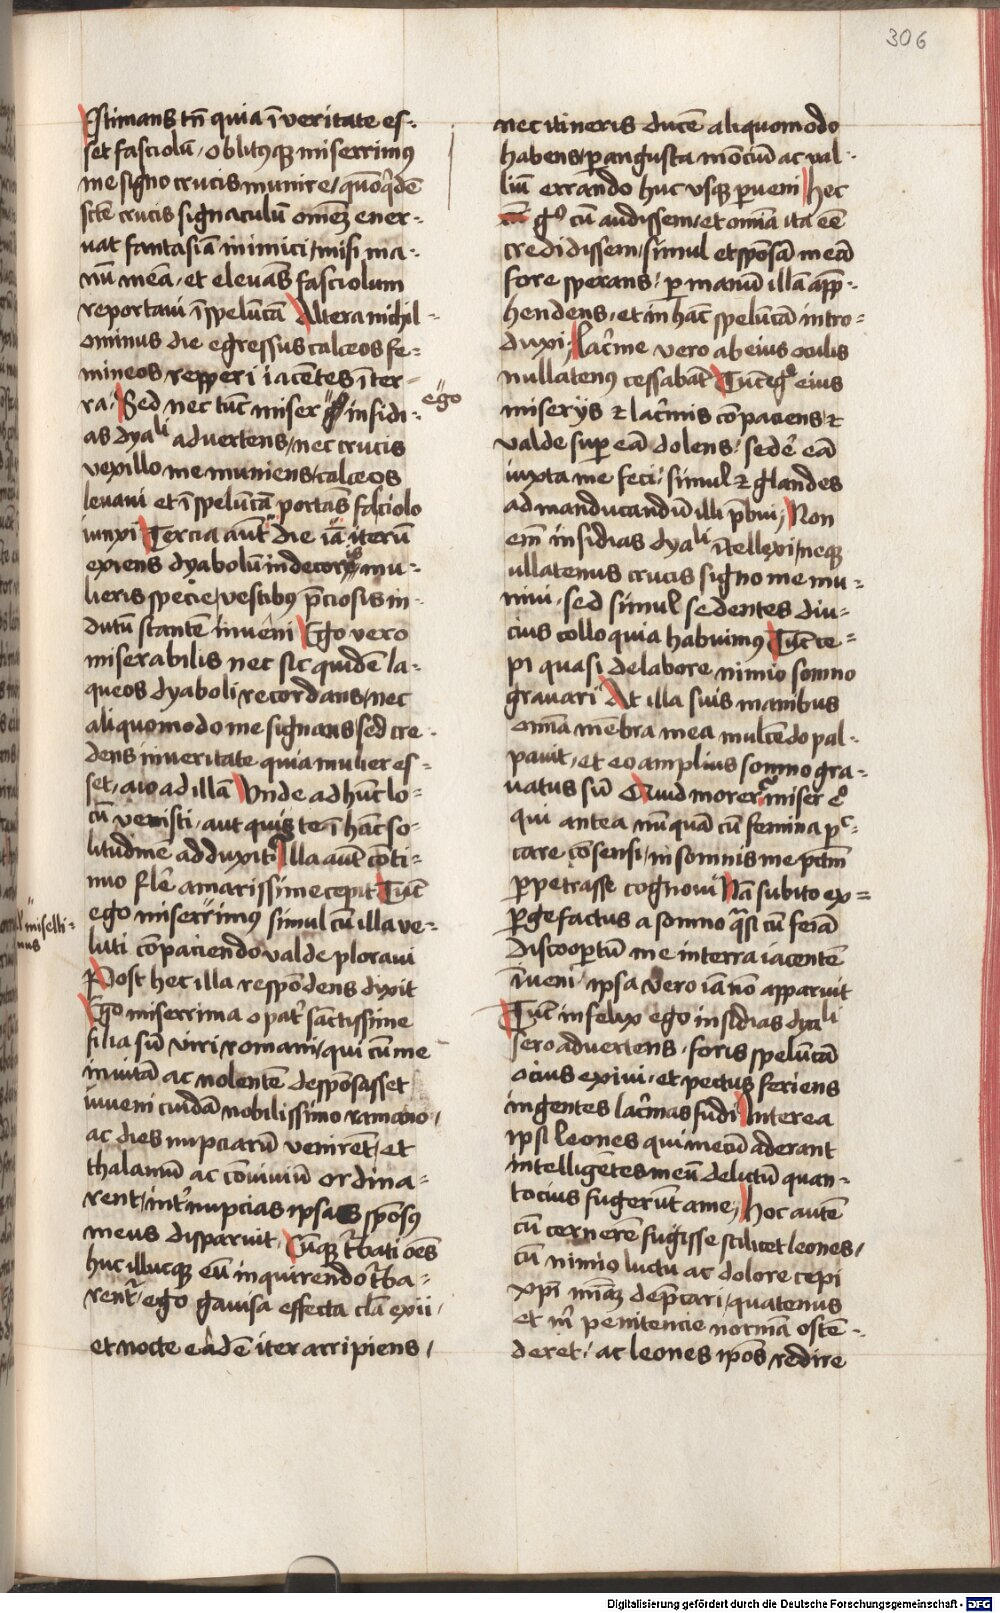 306
Estimans tn̄ quia ī veritate es-
set fasciolū / oblitusq̄ miserrimus
me signo crucis munire / quoq̄dē
scte crucis signaculū omēȝ ener-
vat fantasiā inimici / misi ma-
nū meā / et elevās fasciolum
reportavi ī speluncā Altera nichil-
ominus die egressus calceos fe-
mineos repperi iacentes ī ter-
ra / Sed nec tūc miser ego insidi-
ego
as dyali advertens / nec crucis
vexillo me muniens / calceos
levavi et ī speluncā portās fasciolo
iunxi Tercia aūt die iā iterū
exiens dyabolū in decoris mu-
lieris specie / vestibus p̄ciosis in-
dutū stantē inveni Ego vero
miserabilis nec sic quidē la-
queos dyaboli recordans / nec
aliquomodo me signans sed cre-
dens in veritate quia mulier es-
set / aio ad illā Unde ad hūc lo-
cū venisti / aut quis te ī hāc so-
litudinē adduxit Illa aūt cōti-
nuo flē amarissime cepit Tūc
ego miserrimus simul cū illa ve-
miselli-
nus
luti cōpaciendo valde ploravi
Post hec illa respōdens dixit
Ego miserrima o pat̄ sāctissime
filia sū viri romani / qui cū me
invitā ac nolentē despōsasset
iuveni cuidā nobilissimo romano /
ac dies nupciarū venirēt / et
thalamū ac cōviviū ordina-
rent / int̄ nupcias ipsas spōsus
meus disparuit / Cūq̄ t̄bati oēs
huc illucq̄ eū inquirendo t̄ba-
rent̄ / ego gavisa effecta clā exii /
et nocte eadē iter arripiens /
nec itineris ducē aliquomodo
habens / per angusta mōciū ac val-
liū errando huc usq̄ perveni / Hec
gº cū audissem / et omīa ita eē
credidissem / simul et spōsā meā
fore sperans / per manū illā app̄-
hendens / et in hāc speluncā intro-
duxi / Lac̄me vero ab eius oculis
nullatenus cessabāt Tūc egº eius
miseriis ⁊ lac̄mis cōpaciens ⁊
valde super eā dolens / sedē eā
iuxta me feci / simul ⁊ glandes
ad manducandū illi p̄bui / Non
em̄ insidias dyali ītellexi / neq̄
ullatenus crucis signo me mu-
nivi / sed simul sedentes diu-
cius colloquia habuimus Tūc ce-
pi quasi de labore nimio somno
gravari At illa suis manibus
omīa mēbra mea mulcēdo pal-
pavit / et eo amplius somno gra-
vatus sū Quid morer miser eº
qui antea nūquā cū femina pc-
care cōsensi / in somnis me pctm̄
perpetrasse cognovi Nā subito ex-
pergefactus a somno q̄si cū feīa
discoopertū me in terra iacentē
īveni / ipsa vero iā nō apparuit
Tūc infelix ego insidias dyali
sero advertens / foris speluncā
ocius exivi / et pectus feriens
ingentes lac̄mas fudi Interea
ipsi leones qui mecū aderant
intelligētes meū delictū quan-
tocius fugerūt a me / Hoc autē
cū cernerē fugisse scilicet leones /
cū nimio luctu ac dolore cepi
xpi mīaȝ dep̄cari / quatenus
et m̄ penitencie normā ostē-
deret / ac leones ipōs redire
Digitalisierung gefördert durch die Deutsche Forschungsgemeinschaft - DFG